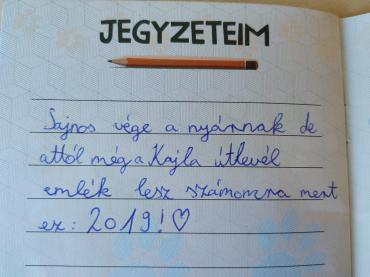 JEGYZETEIM
Sajnos vége a nyárnak de
attól még a Kajla útlevél
emlék lesz számomra mert
ez: 2019!♡